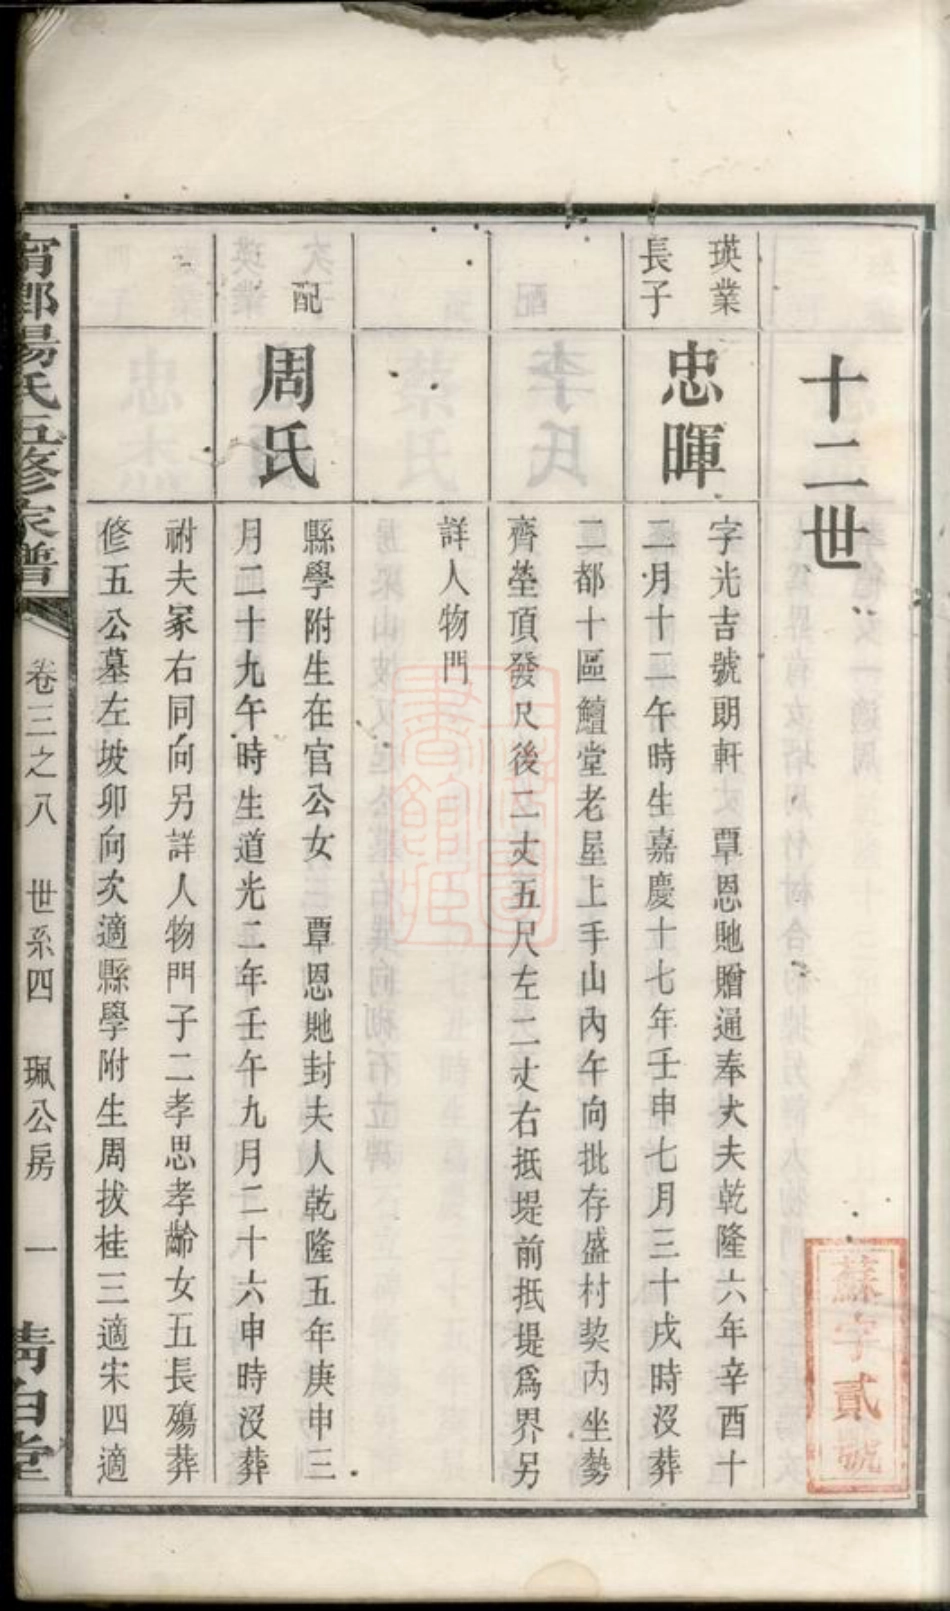 十二世
瑛業
長子
忠暉
字光吉號朗軒 覃恩貤贈通奉大夫乾隆六年辛酉十
二月十二午時生嘉慶十七年壬申七月三十戌時沒葬
二都十區鱣堂老屋上手山內午向批存盛村契內坐勢
齊塋頂發尺後二丈五尺左二丈右抵堤前抵堤爲界另
詳人物門
配
周氏
縣學附生在官公女 覃恩貤封夫人乾隆五年庚申三
月二十九午時生道光二年壬午九月二十六申時沒葬
祔夫冢右同向另詳人物門子二孝思孝齡女五長殤葬
修五公墓左坡卯向次適縣學附生周拔桂三適宋四適
甯鄉湯氏五修家譜
卷三之八 世系四 珮公房 一
清白堂
蘇字貳號